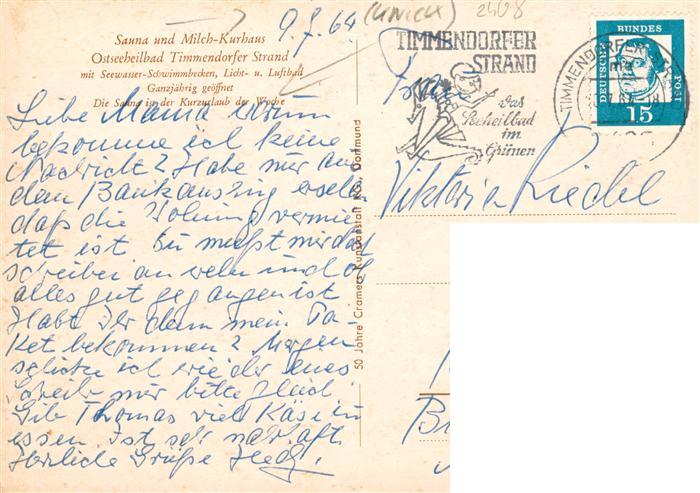 9.7.64
2408
Sauna und Milch-Kurhaus
Ostseeheilbad Timmendorfer Strand
mit Seewasser-Schwimmbecken, Licht- u. Luftbad
Ganzjährig geöffnet
Die Sauna ist der Kurzurlaub der Woche
Liebe Mama warum
bekomme ich keine
Nachricht? Habe nur aus
dem Bankauszug
daß die Wohnung vermie-
tet ist. Du mußt mir doch
schreiben an wehn und ob
alles gut gegangen ist
Habt Ihr denn mein Pa-
ket bekommen? Morgen
schicke ich wieder eines
Schreib mir bitte
Gib Thomas viel Käse zu
essen. Ist sehr nahrhaft
Herzliche Grüße
50 Jahre Cramers Kunstanstalt KG, Dortmund
TIMMENDORFER
STRAND
Das
Seeheilbad
im
Grünen
TIMMENDORFER
DEUTSCHE BUNDESPOST
15
Frau
Viktoria Riedel